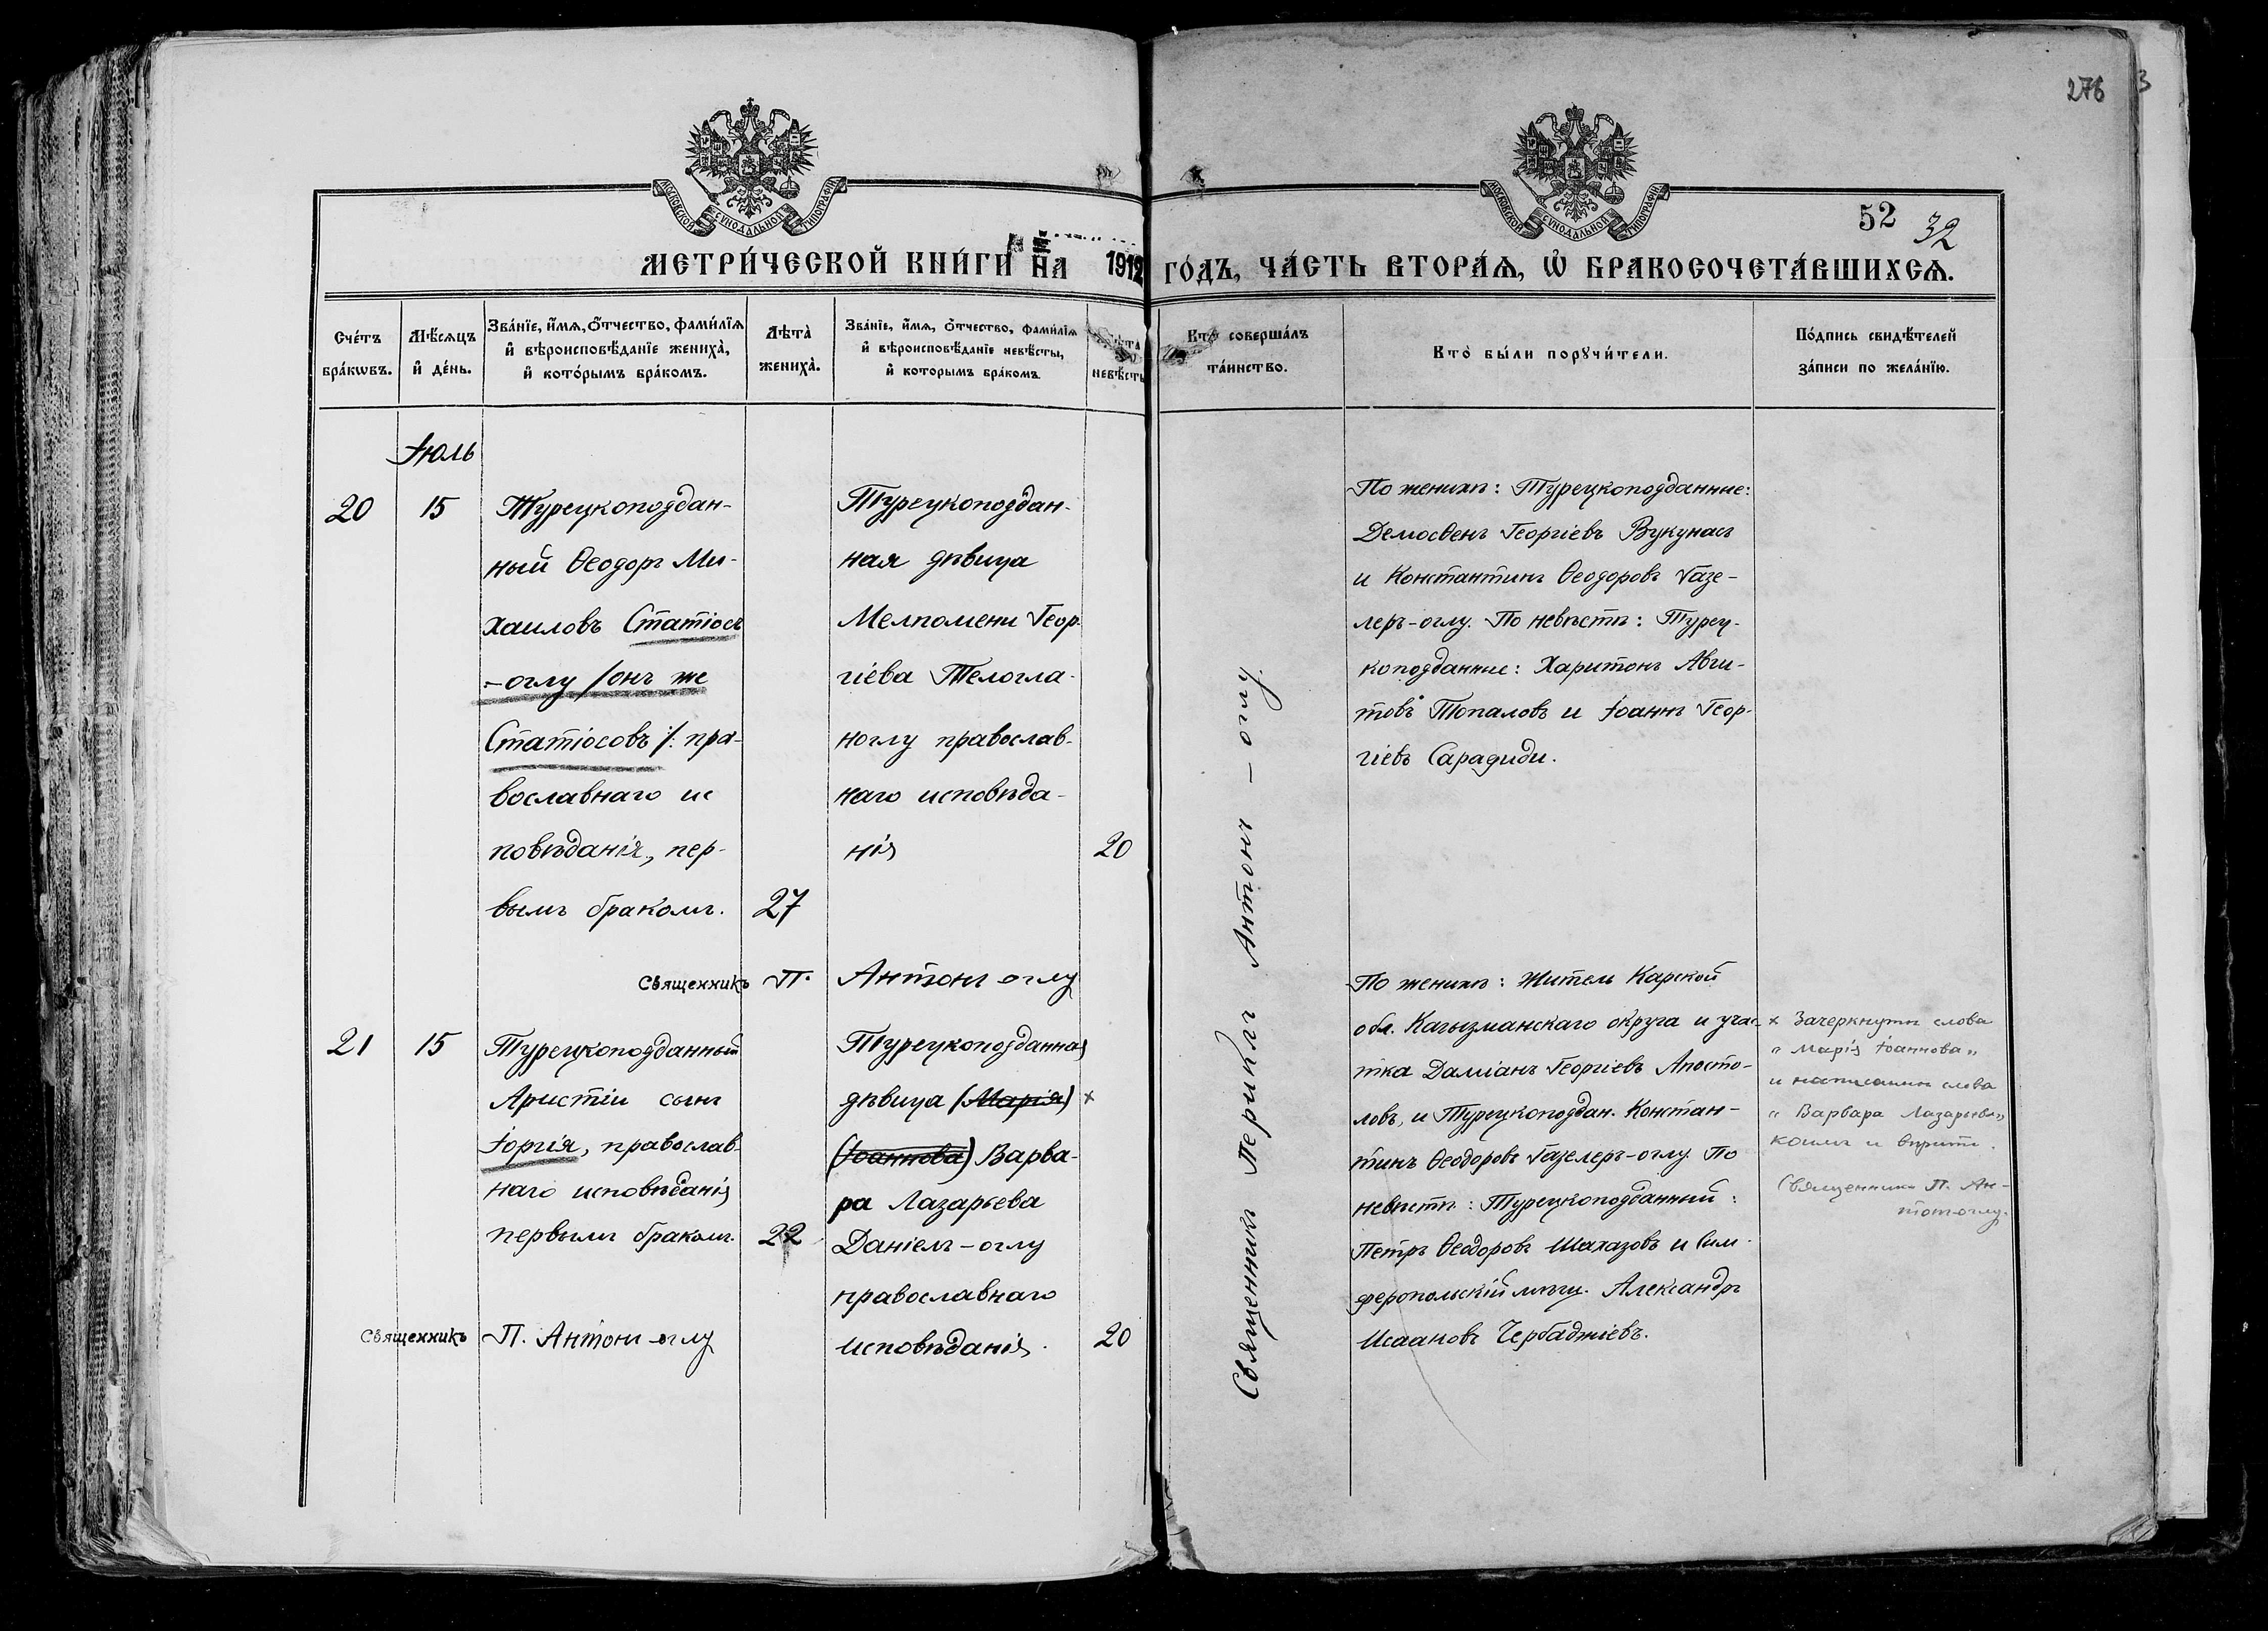 276
3
МОСКОВСКОЙ СѴНОДАЛЬНОЙ ТИПОГРАФІИ
МОСКОВСКОЙ СѴНОДАЛЬНОЙ ТИПОГРАФІИ
52 32
МЕТРИ́ЧЕСКОЙ КНИ́ГИ НА 1912 ГО́ДЪ, ЧА́СТЬ ВТОРА́Я, Ѡ҆ БРАКОСОЧЕТА́ВШИХСѦ.
Сче́тъ бра́кѡвъ.
Мѣ́сѧцъ и҆ де́нь.
Зва́нїе, и҆́мѧ, ѻ҆́тчество, фами́лїѧ
и҆ вѣроисповѣ́данїе жениха̀,
и҆ кото́рымъ бра́комъ.
Лѣта̀
жениха̀.
Зва́нїе, и҆́мѧ, ѻ҆́тчество, фами́лїѧ
и҆ вѣроисповѣ́данїе невѣ́сты,
и҆ которымъ бра́комъ.
Лѣта̀
невѣ́сты
Кто̀ соверша́лъ
та́инство.
Кто̀ бы́ли порꙋчи́тели.
По́дпись свидѣ́телей
за́писи по жела́нїю.
Іюль
20
15
Турецкоподдан-
ный Ѳеодоръ Ми-
хаиловъ Статіосъ
-оглу /онъ же
Статіосовъ/: пра-
вославнаго ис
повѣданія, пер-
вымъ бракомъ.
27
Турецкоподдан-
ная дѣвица
Мелпомени Геор-
гіева Телогла-
ноглу православ-
наго исповѣда-
нія
20
Священникъ П. Антонъ оглу
По женихѣ: Турецкоподданные:
Демосѳенъ Георгіевъ Вукунасъ
и Константинъ Ѳеодоровъ Газе-
леръ-оглу. По невѣстѣ: Турец-
коподданные: Харитонъ Авги-
товъ Топаловъ и Іоаннъ Геор-
гіевъ Сарадиди.
Священникъ Периклъ Антонъ – оглу.
21
15
Турецкоподданный
Аристіи сынъ
Іоргія, православ-
наго исповѣданія
первымъ бракомъ.
22
Турецкоподданная
дѣвица (Марія) ×
(Іоаннова) Варва-
ра Лазарьева
Даніелъ-оглу
православнаго
исповѣданія.
20
Священникъ П. Антонъ-оглу
По женихѣ: Житель Карской
обл. Кагызманскаго округа и учас-
тка Даміанъ Георгіевъ Апосто-
ловъ, и Турецкоподдан. Констан-
тинъ Ѳеодоровъ Газелеръ-оглу. По
невѣстѣ: Турецкоподданный:
Петръ Ѳеодоровъ Шахазовъ и Сим-
феропольскій мѣщ. Александръ
Исааковъ Чербаджіевъ.
× Зачеркнуты слова
„Марія Іоаннова„
и написаны слова
„Варвара Лазарьева„
коимъ и вѣрить.
Священникъ П. Ан-
тонъоглу.